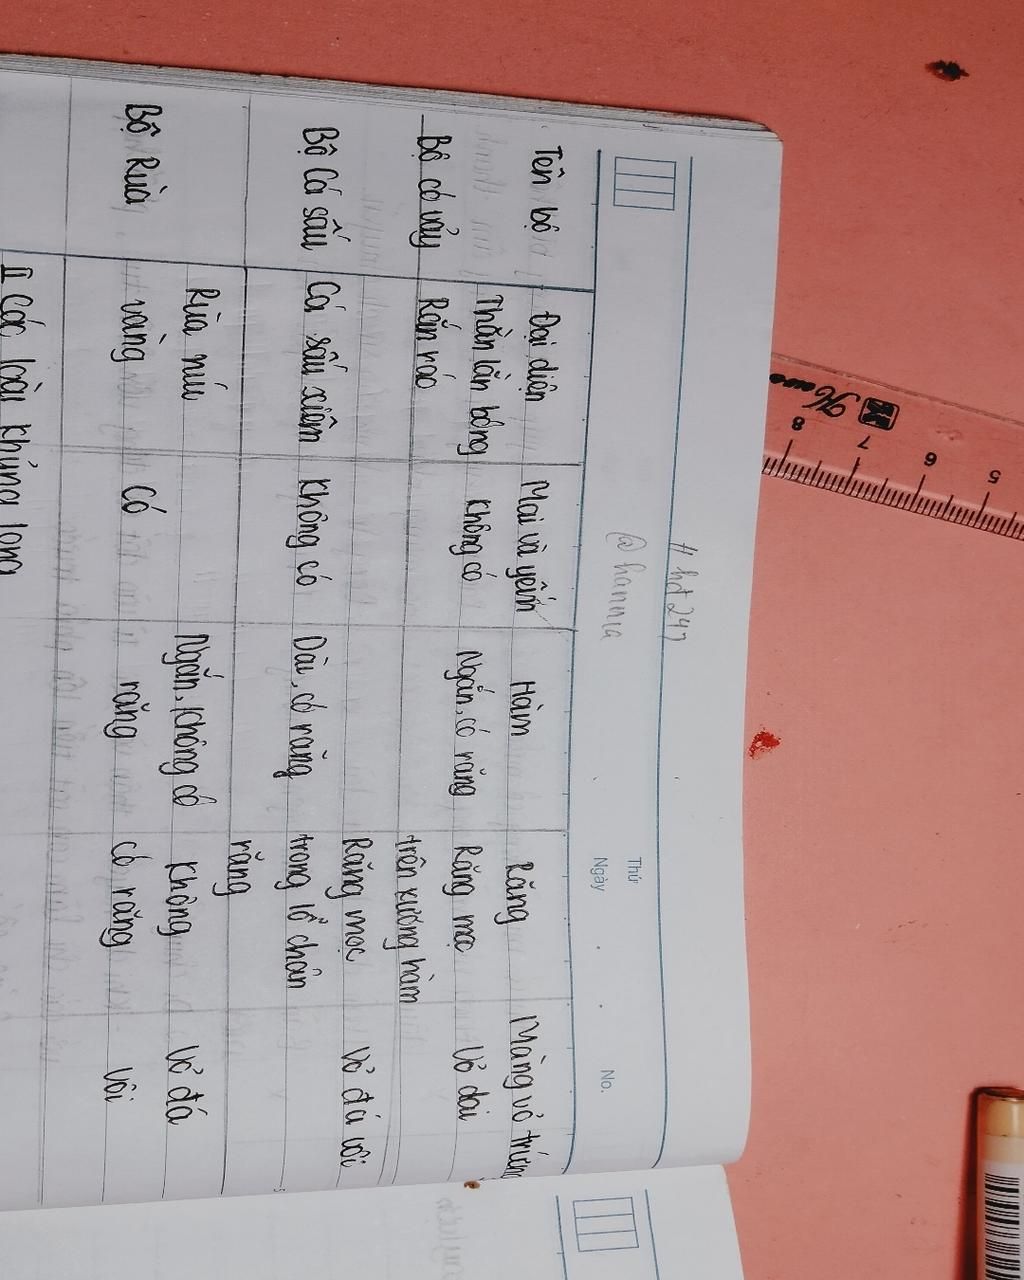 # hđ 247
@hannna
Thứ
Ngày
No.
Tên bộ Đại diện Mai và yếm Hàm Răng Màng vỏ trứng
Bộ có vảy Thằn lằn bóng Không có Ngắn, có răng Răng mọc Vỏ dai
Rắn ráo trên xương hàm
Bộ Cá sấu Cá sấu xiêm Không có Dài, có răng Răng mọc Vỏ đá vôi
trong lỗ chân
răng
Bộ Rùa Rùa núi Có Ngắn, không có Không Vỏ đá
vàng răng có răng vôi
II Các loài khủng long
Kewo
8 7 6 5